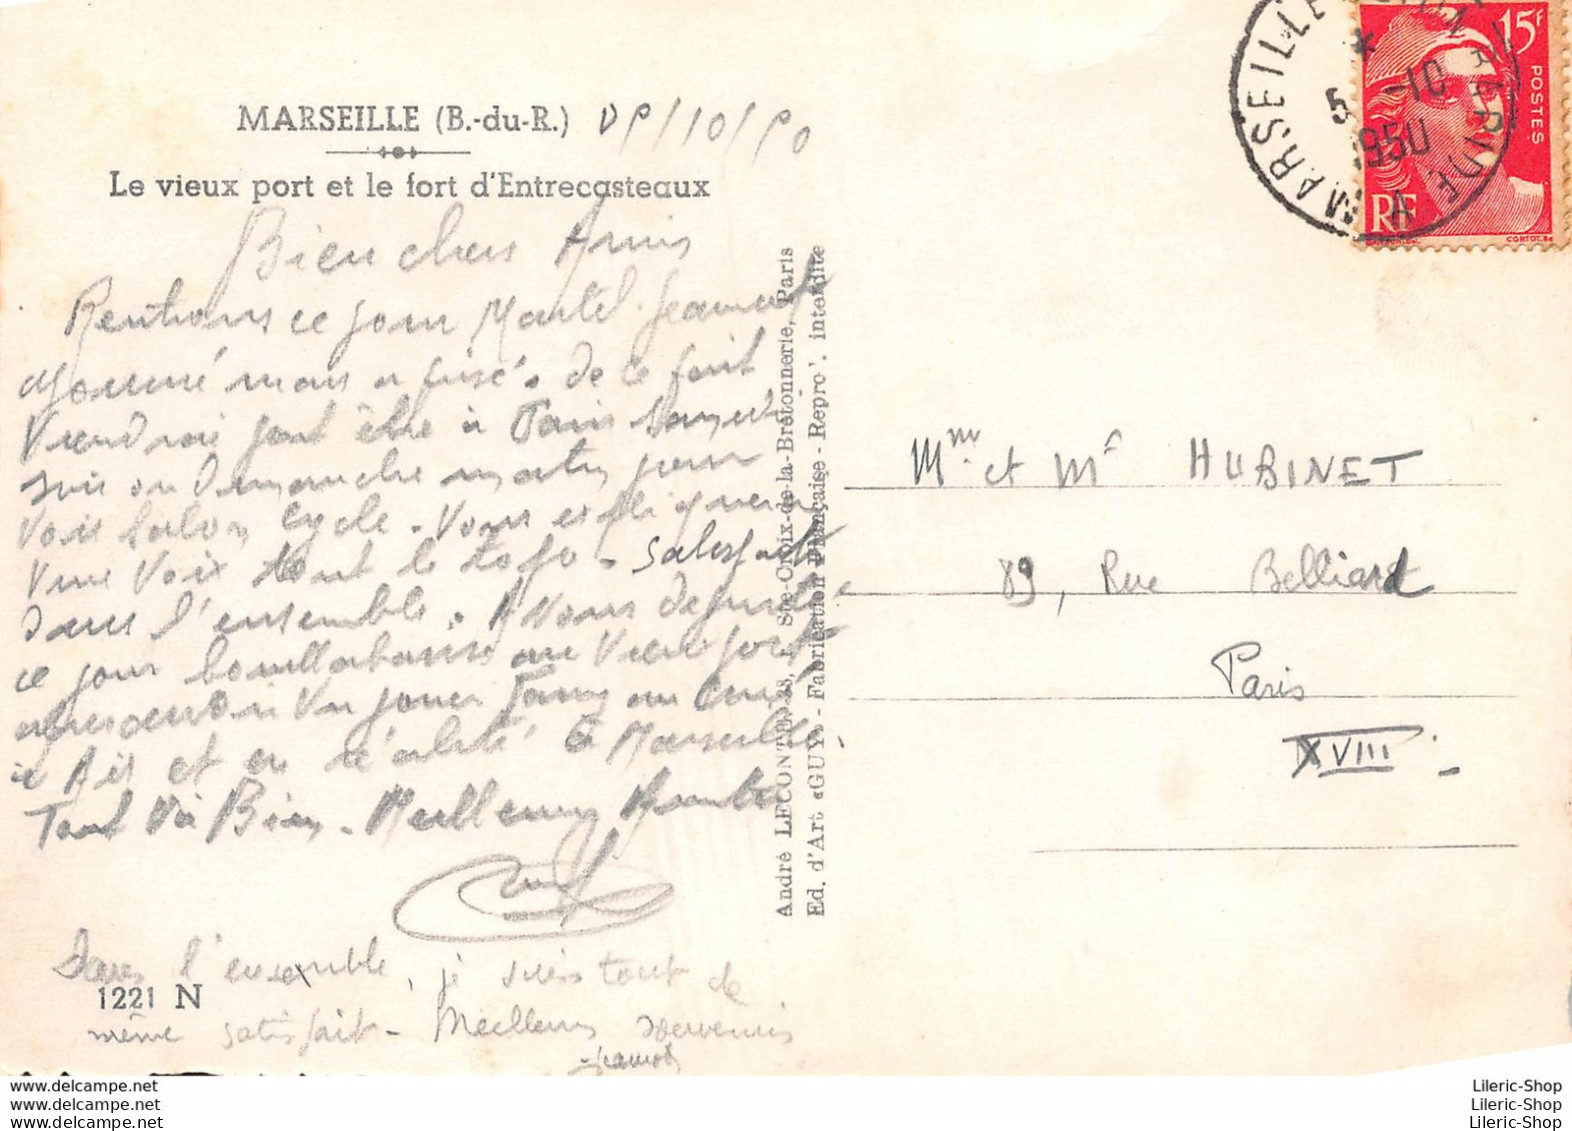 MARSEILLE (B.-du-R.)
Le vieux port et le fort d'Entrecasteaux
Bien chers Amis
Rentrons ce jour Martel. Jeannot
mais a fusé. de ce fait
Viendrai peut être à Paris Samedi
soir ou Dimanche matin pour
Voir Salon Cycle. Vous expliquerai
Vive Voix tout le topo - Satisfait
dans l'ensemble. A Vous déguste
ce jour bouillabaisse au Vieux port
Aix et en réalité à Marseille.
Tout Va Bien. Meilleures Amitiés
Dans l'ensemble, je suis tout de
même satisfait - Meilleurs souvenirs
Jeannot
1221 N
André LECONTE, 38, r. Ste-Croix-de-la-Bretonnerie, Paris
Ed. d'Art «GUY» - Fabrication Française - Repro. interdite
MARSEILLE
5 -10
1950
15F
POSTES
RF
CORTOT.
Mme et Mr HUBINET
89, Rue Belliard
Paris
XVIII
delcampe.net
delcampe.net
delcampe.net
Lileric-Shop
Lileric-Shop
Lileric-Shop